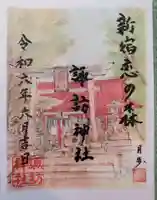 新宿恋の森
諏訪神社
令和六年六月吉日